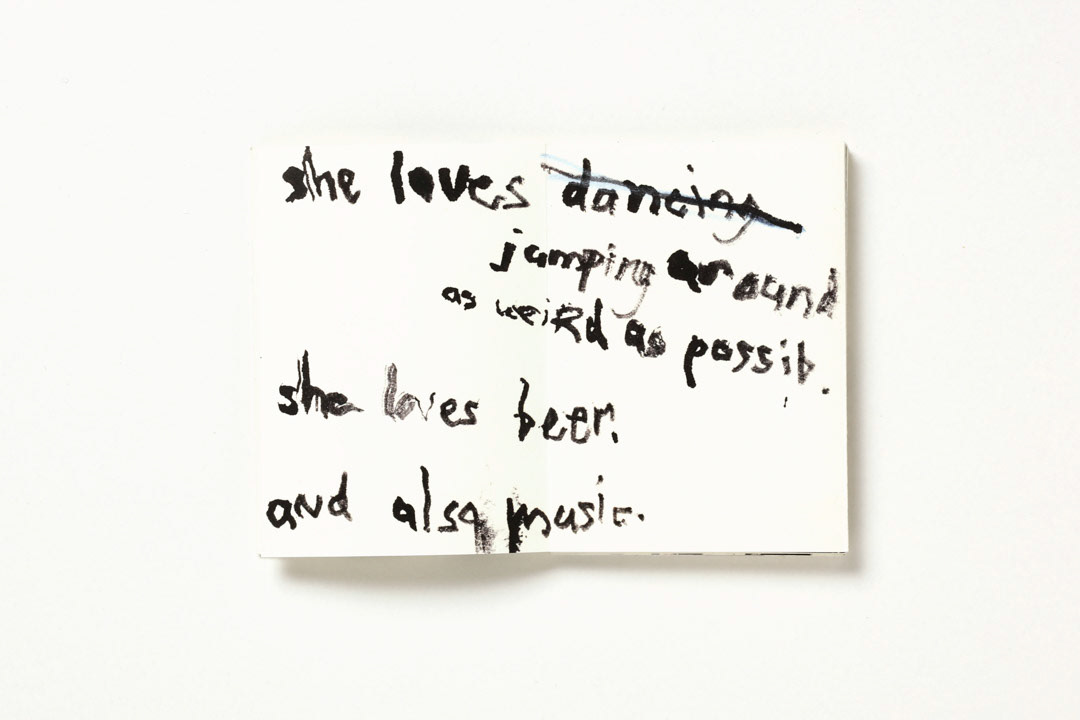 she loves dancing
jumping around
as weird as possib.
she loves beer.
and also music.